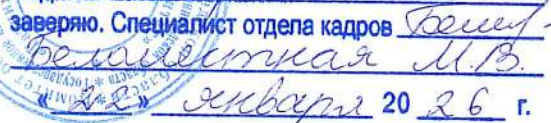 заверяю. Специалист отдела кадров
Беломестная М.В.
«22» января 2026 г.